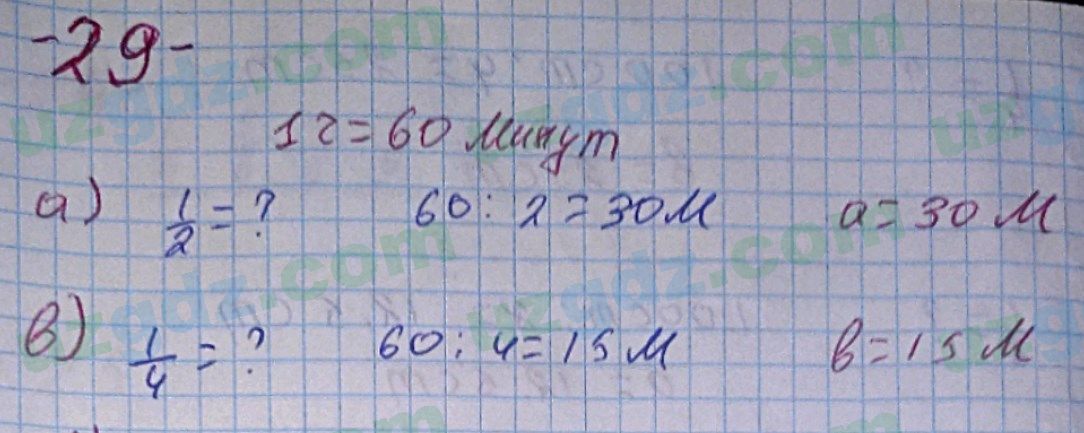 -29-
1г = 60 минут
а) 1/2 = ? 60 : 2 = 30 м а = 30 м
в) 1/4 = ? 60 : 4 = 15 м в = 15 м